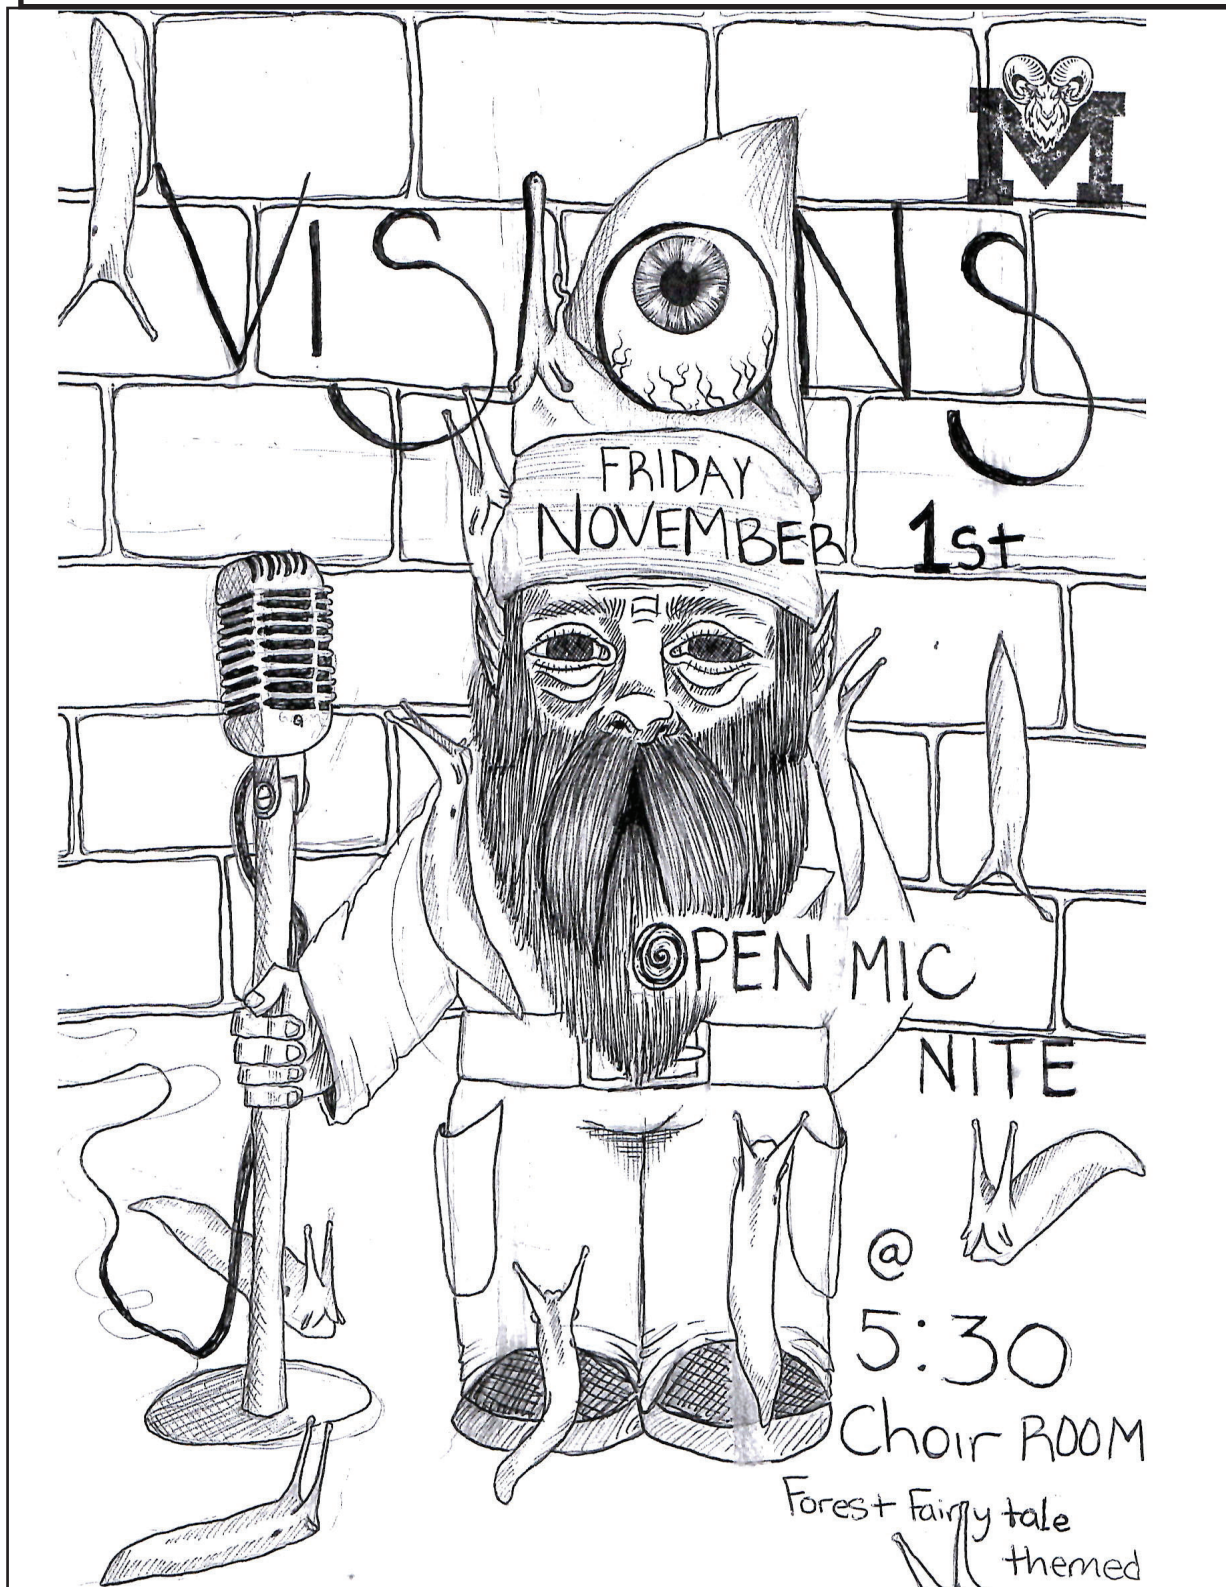 M
VISIONS
FRIDAY
NOVEMBER 1st
OPEN MIC
NITE
@
5:30
Choir ROOM
Forest Fairy tale
themed